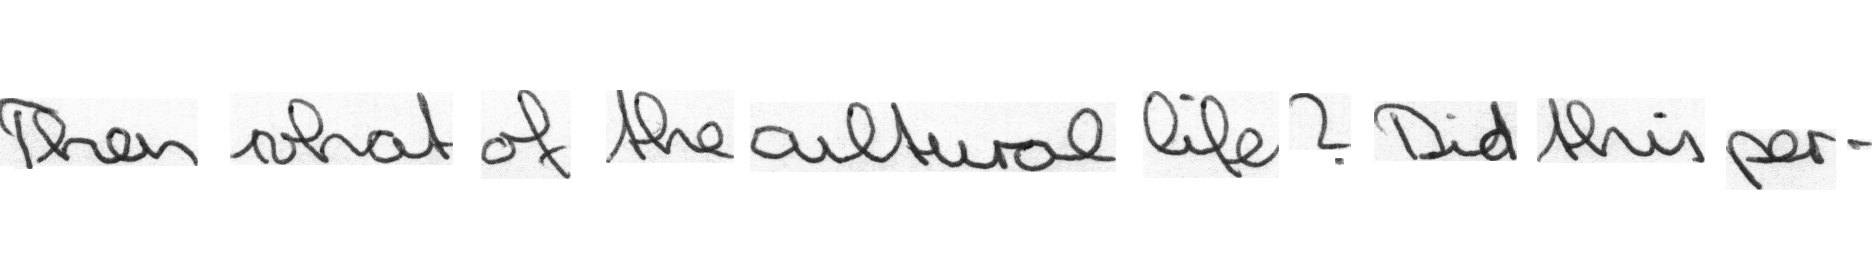 Then what of the cultural life? Did this per-